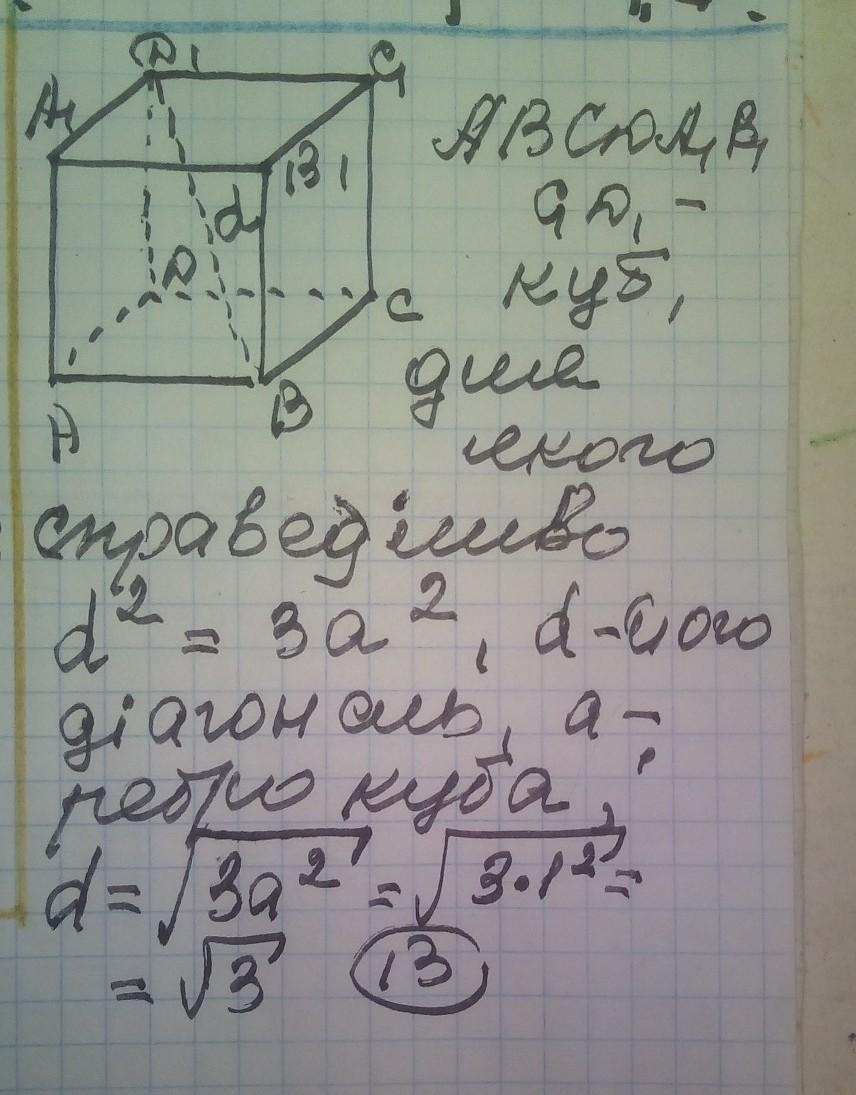 D₁
C₁
A₁
B₁
d
D
C
A
B
ABCDA₁B₁
C₁D₁ –
куб,
для
якого
справедліливо
d² = 3a², d – його
діагональ, a –
ребро куба,
d = √3a² = √3·1² =
= √3 В